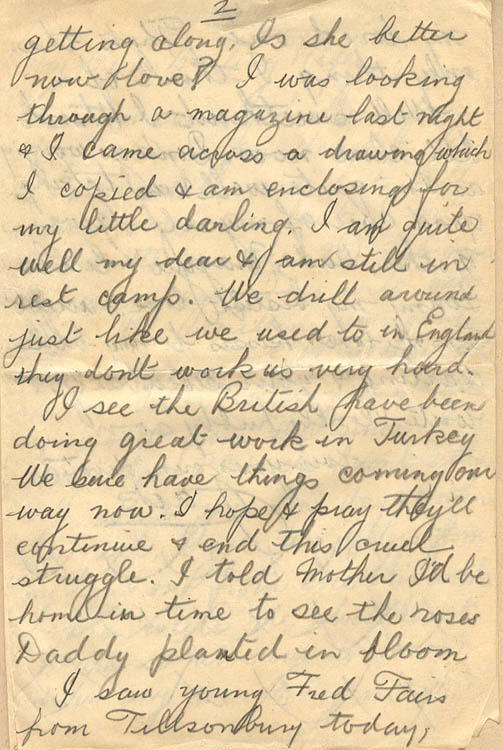 2
getting along. Is she better
now love? I was looking
through a magazine last night
& I came across a drawing which
I copied & am enclosing for
my little darling. I am quite
well my dear & am still in
rest camp. We drill around
just like we used to in England
they don't work us very hard.
I see the British have been
doing great work in Turkey
We sure have things coming our
way now. I hope & pray they'll
continue & end this cruel
struggle. I told Mother I'd be
home in time to see the roses
Daddy planted in bloom
I saw young Fred Fairs
from Tillsonburg today,